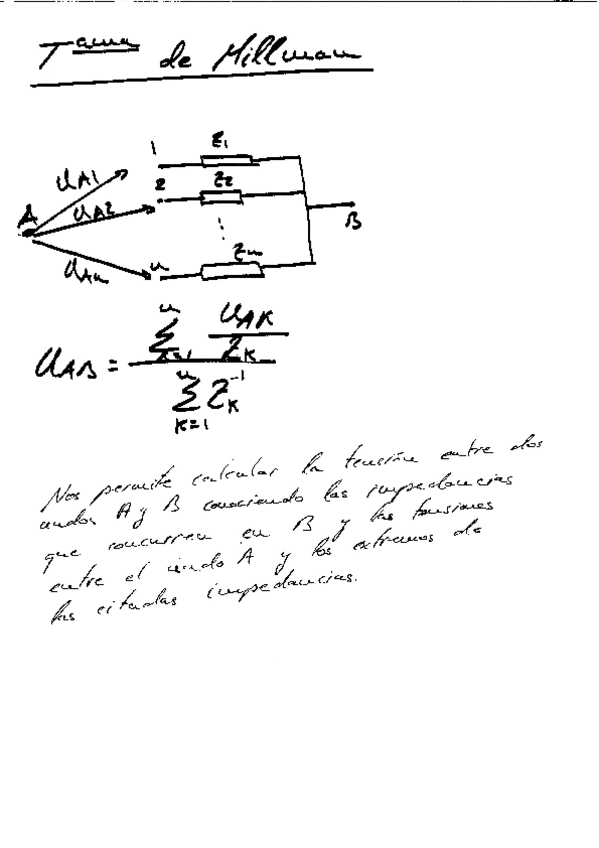 Tema de Millman
1 Z1
UA1 2 Z2
A UA2 B
UAn n Zn
UAB = \frac{\sum_{k=1}^{n} \frac{UAK}{ZK}}{\sum_{K=1}^{n} Z_K^{-1}}
Nos permite calcular la tensión entre dos
nudos A y B conociendo las impedancias
que concurren en B y las tensiones
entre el nudo A y los extremos de
las citadas impedancias.